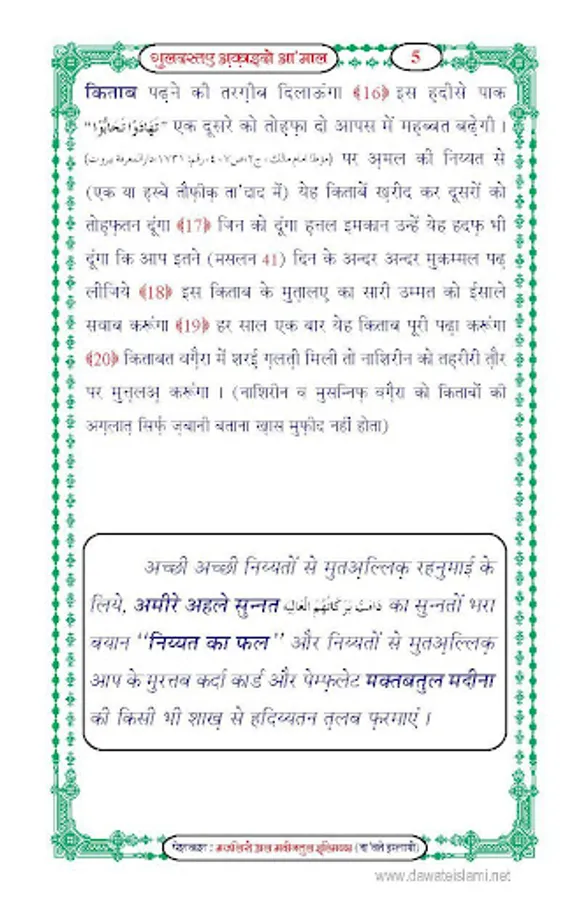 गुलदस्तए अक़ाइदो आ'माल
5
किताब पढ़ने की तरग़ीब दिलाऊंगा ﴾16﴿ इस ह़दीसे पाक
"تَهَادَوْا تَحَابُّوْا" एक दूसरे को तोह़फ़ा दो आपस में मह़ब्बत बढ़ेगी ।
(مؤطا امام مالك، ج٢، ص٤٠٧، رقم: ١٧٣١، دار المعرفة بيروت) पर अ़मल की निय्यत से
(एक या ह़स्बे तौफ़ीक़ ता'दाद में) येह किताबें ख़रीद कर दूसरों को
तोह़फ़तन दूंगा ﴾17﴿ जिन को दूंगा ह़त्तल इमकान उन्हें येह हदफ़ भी
दूंगा कि आप इतने (मसलन 41) दिन के अन्दर अन्दर मुकम्मल पढ़
लीजिये ﴾18﴿ इस किताब के मुत़ालए़ का सारी उम्मत को ईसाले
सवाब करूंगा ﴾19﴿ हर साल एक बार येह किताब पूरी पढ़ा करूंगा
﴾20﴿ किताबत वग़ैरा में शरई़ ग़लत़ी मिली तो नाशिरीन को तह़रीरी त़ौर
पर मुत्त़लअ़ करूंगा । (नाशिरीन व मुसन्निफ़ वग़ैरा को किताबों की
अग़लात़ सिर्फ़ ज़बानी बताना ख़ास मुफ़ीद नहीं होता)
अच्छी अच्छी निय्यतों से मुतअ़ल्लिक़ रहनुमाई के
लिये, अमीरे अहले सुन्नत دَامَتْ بَرَكَاتُهُمُ الْعَالِيَه का सुन्नतों भरा
बयान "निय्यत का फल" और निय्यतों से मुतअ़ल्लिक़
आप के मुरत्तब कर्दा कार्ड और पेम्फ़लेट मक्तबतुल मदीना
की किसी भी शाख़ से हदिय्यतन त़लब फ़रमाएं ।
पेशकश : मजलिसे अल मदीनतुल इ़ल्मिय्या (दा'वते इस्लामी)
www.dawateislami.net